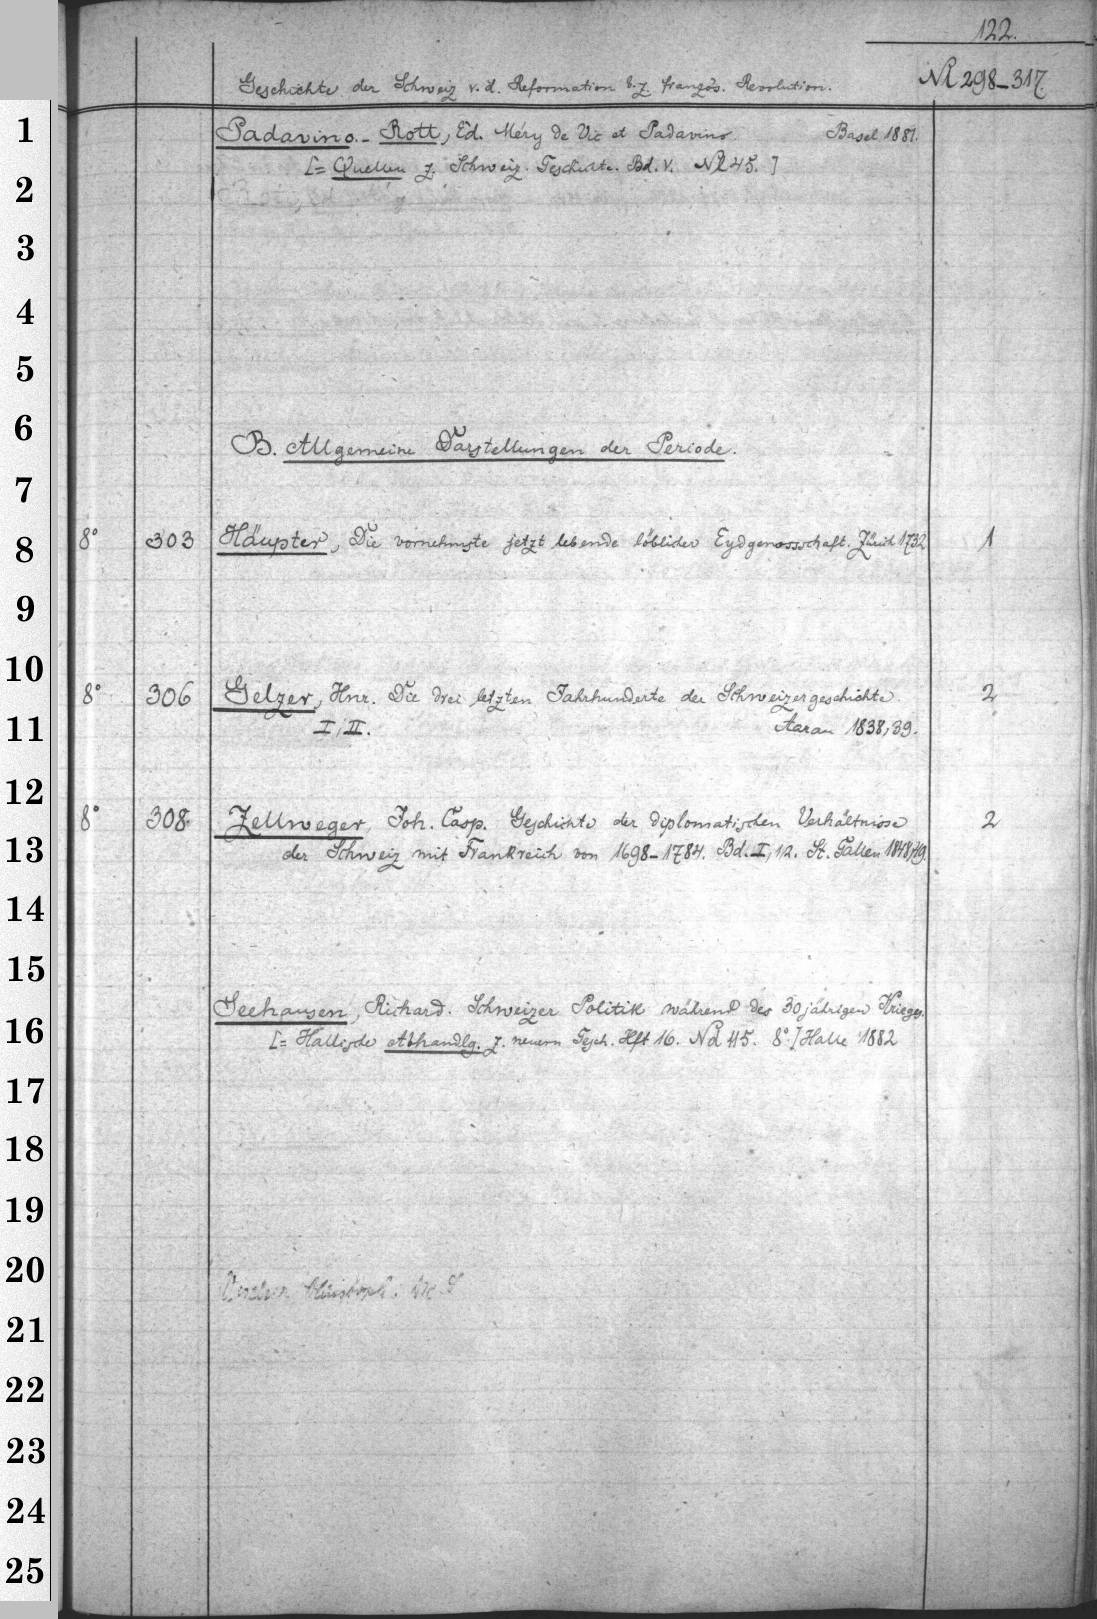 122.
Geschichte der Schweiz v. d. Reformation b. z. französ. Revolution. Nd 298-317
1 Padavino. - Rott, Ed. Méry de Vic et Padavino. Basel 1881.
[= Quellen z. Schweiz. Geschichte. Bd. V. Nd 45. ]
2
3
4
5
6 B. Allgemeine Darstellungen der Periode.
7
8 8° 303 Häupter, Die vornehmste jetzt lebende löblicher Eydgenossschaft. Zürich 1732 1
9
10 8° 306 Gelzer, Hnr. Die drei letzten Jahrhunderte der Schweizergeschichte. 2
11 I, II. Aarau 1838, 39.
12 8° 308 Zellweger, Joh. Casp. Geschichte der diplomatischen Verhältnisse 2
13 der Schweiz mit Frankreich von 1698-1784. Bd. I, 1 2. St. Gallen 1848, 49.
14
15
Seehausen, Richard. Schweizer Politik während des 30 jährigen Krieges.
16 [= Hallische Abhandlg. z. neuern Gesch. Hft 16. Nd 45. 8°.] Halle 1882
17
18
19
20
21
22
23
24
25